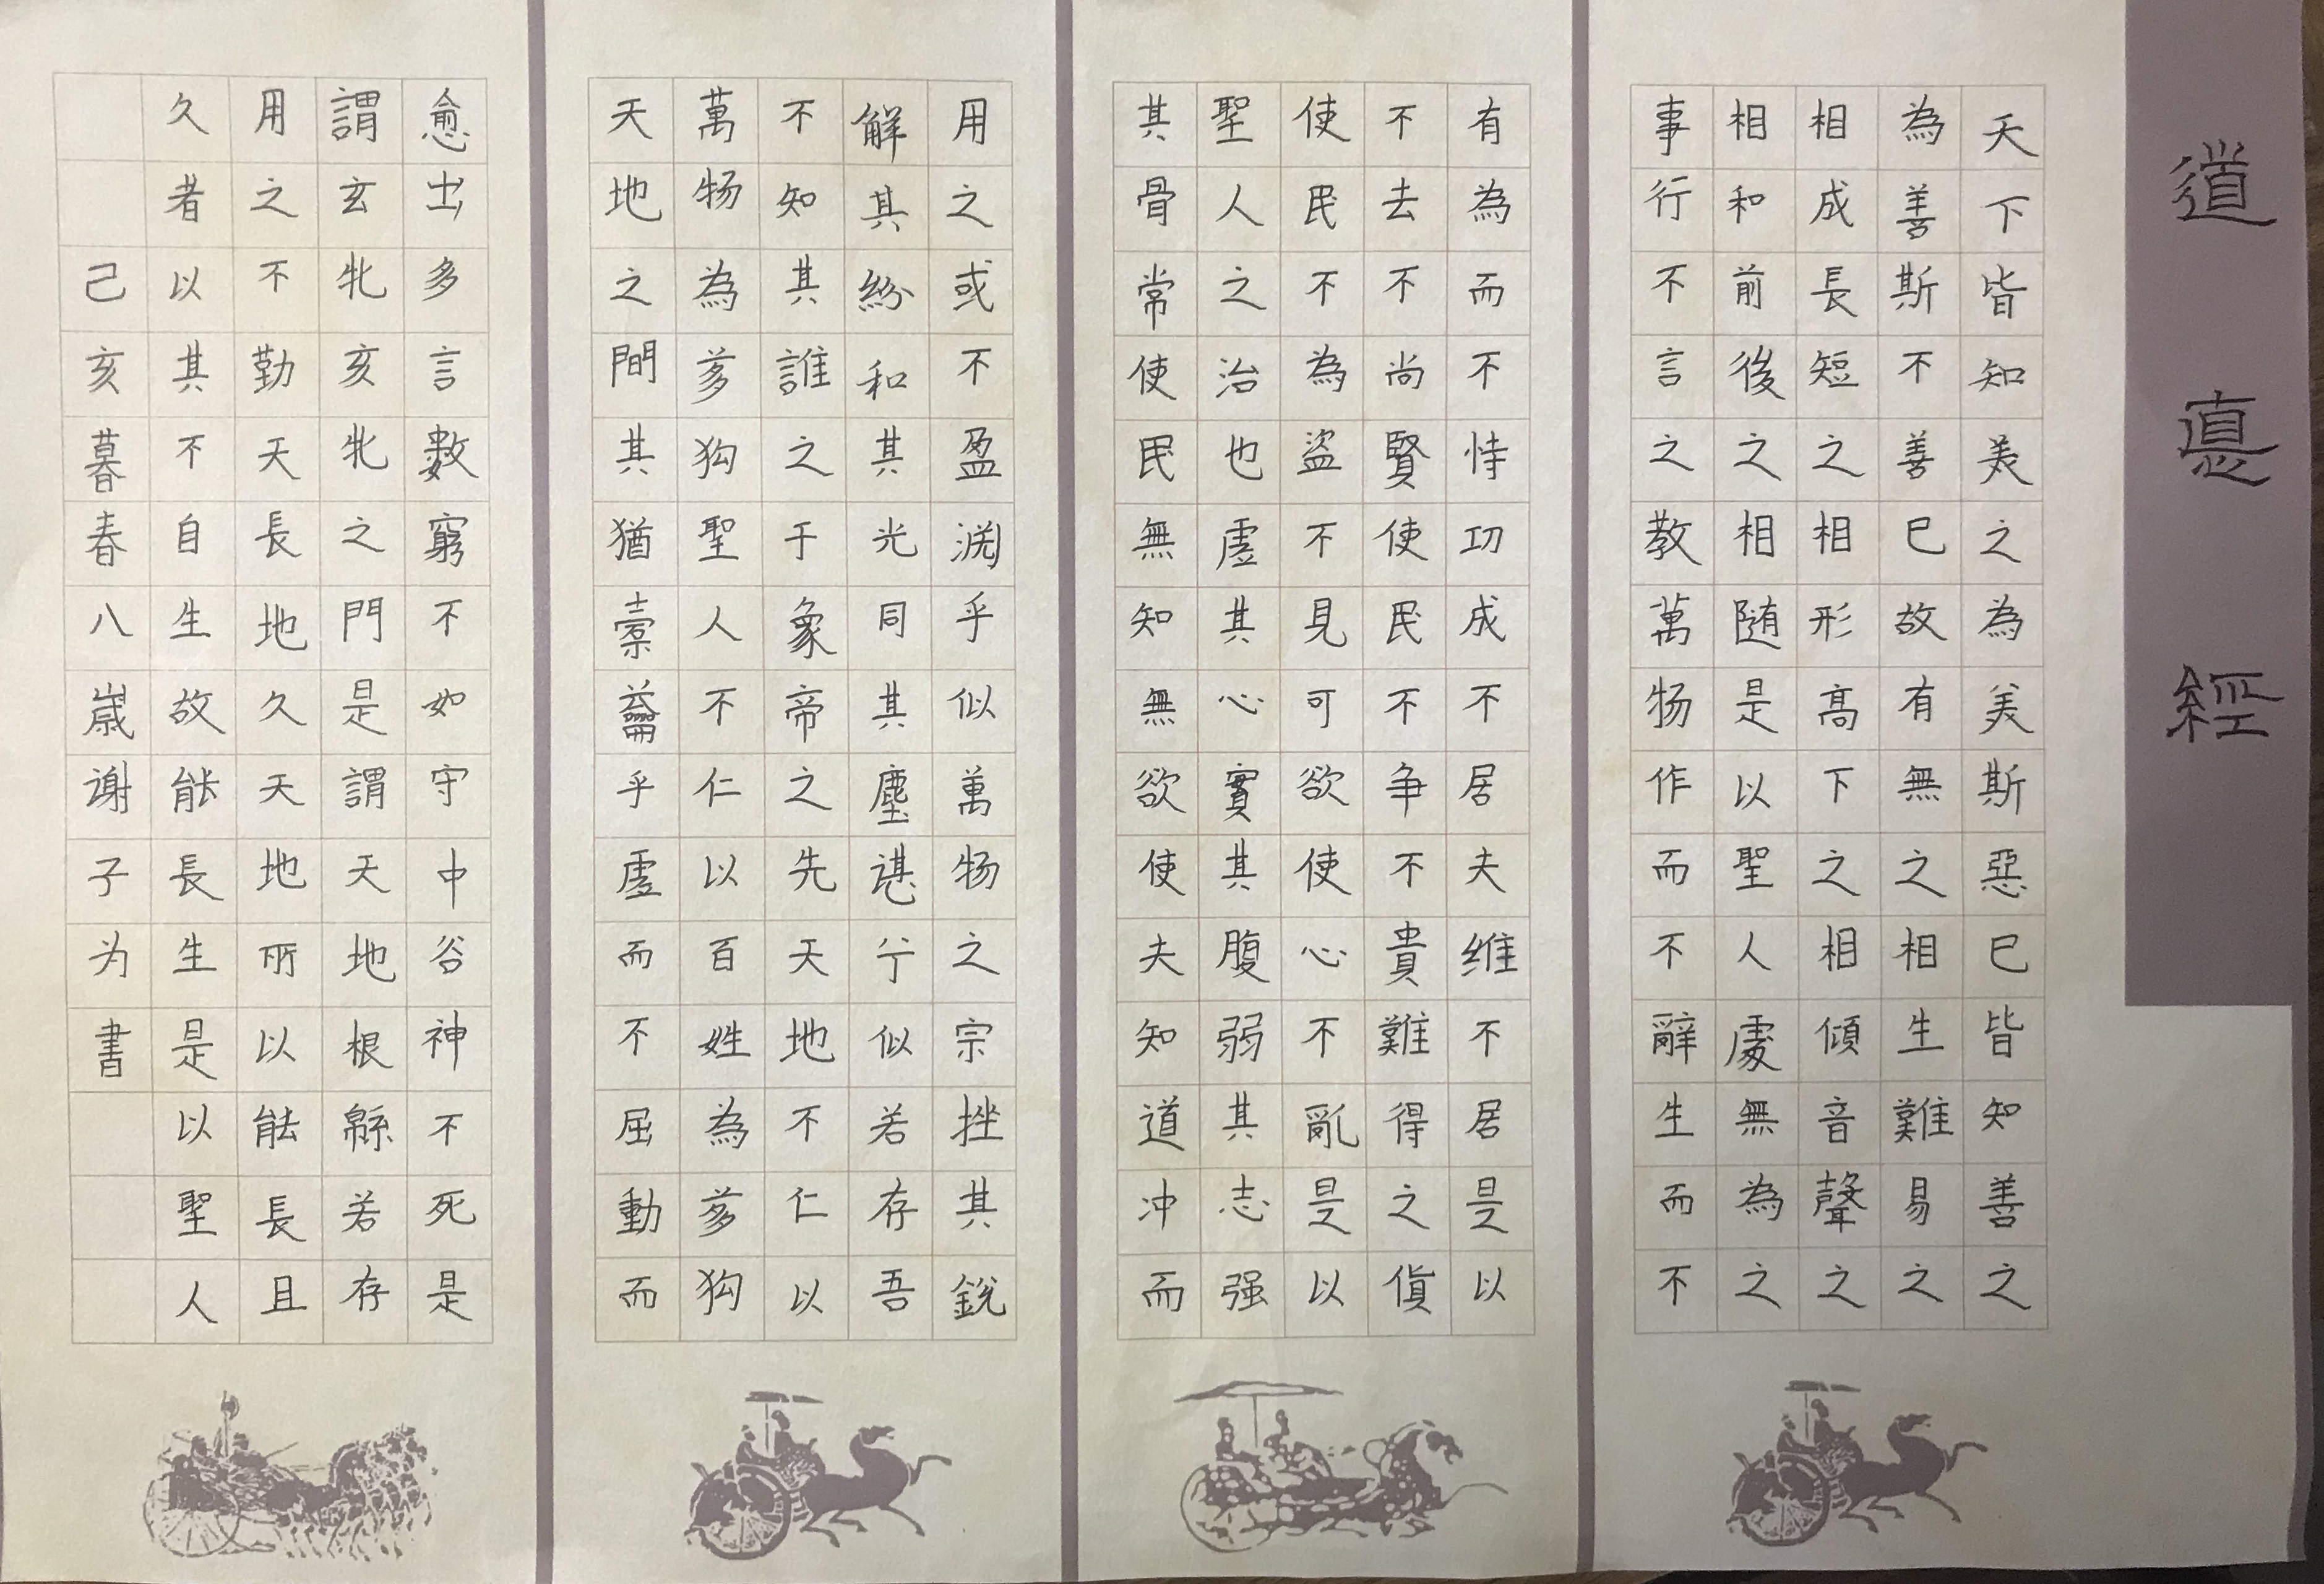 道悳經
天下皆知美之為美斯惡已皆知善之
為善斯不善已故有無之相生難易之
相成長短之相形高下之相傾音聲之
相和前後之相隨是以聖人處無為之
事行不言之教萬物作而不辭生而不
有為而不恃功成不居夫维不居是以
不去不尚賢使民不争不貴難得之貨
使民不為盜不見可欲使心不亂是以
聖人之治也虛其心實其腹弱其志强
其骨常使民無知無欲使夫知道冲而
用之或不盈渊乎似萬物之宗挫其銳
解其紛和其光同其塵湛兮似若存吾
不知其誰之于象帝之先天地不仁以
萬物為芻狗聖人不仁以百姓為芻狗
天地之間其猶橐籥乎虛而不屈動而
愈出多言數窮不如守中谷神不死是
謂玄牝玄牝之門是謂天地根緜若存
用之不勤天長地久天地所以能長且
久者以其不自生故能長生是以聖人
己亥暮春八歲谢子为書